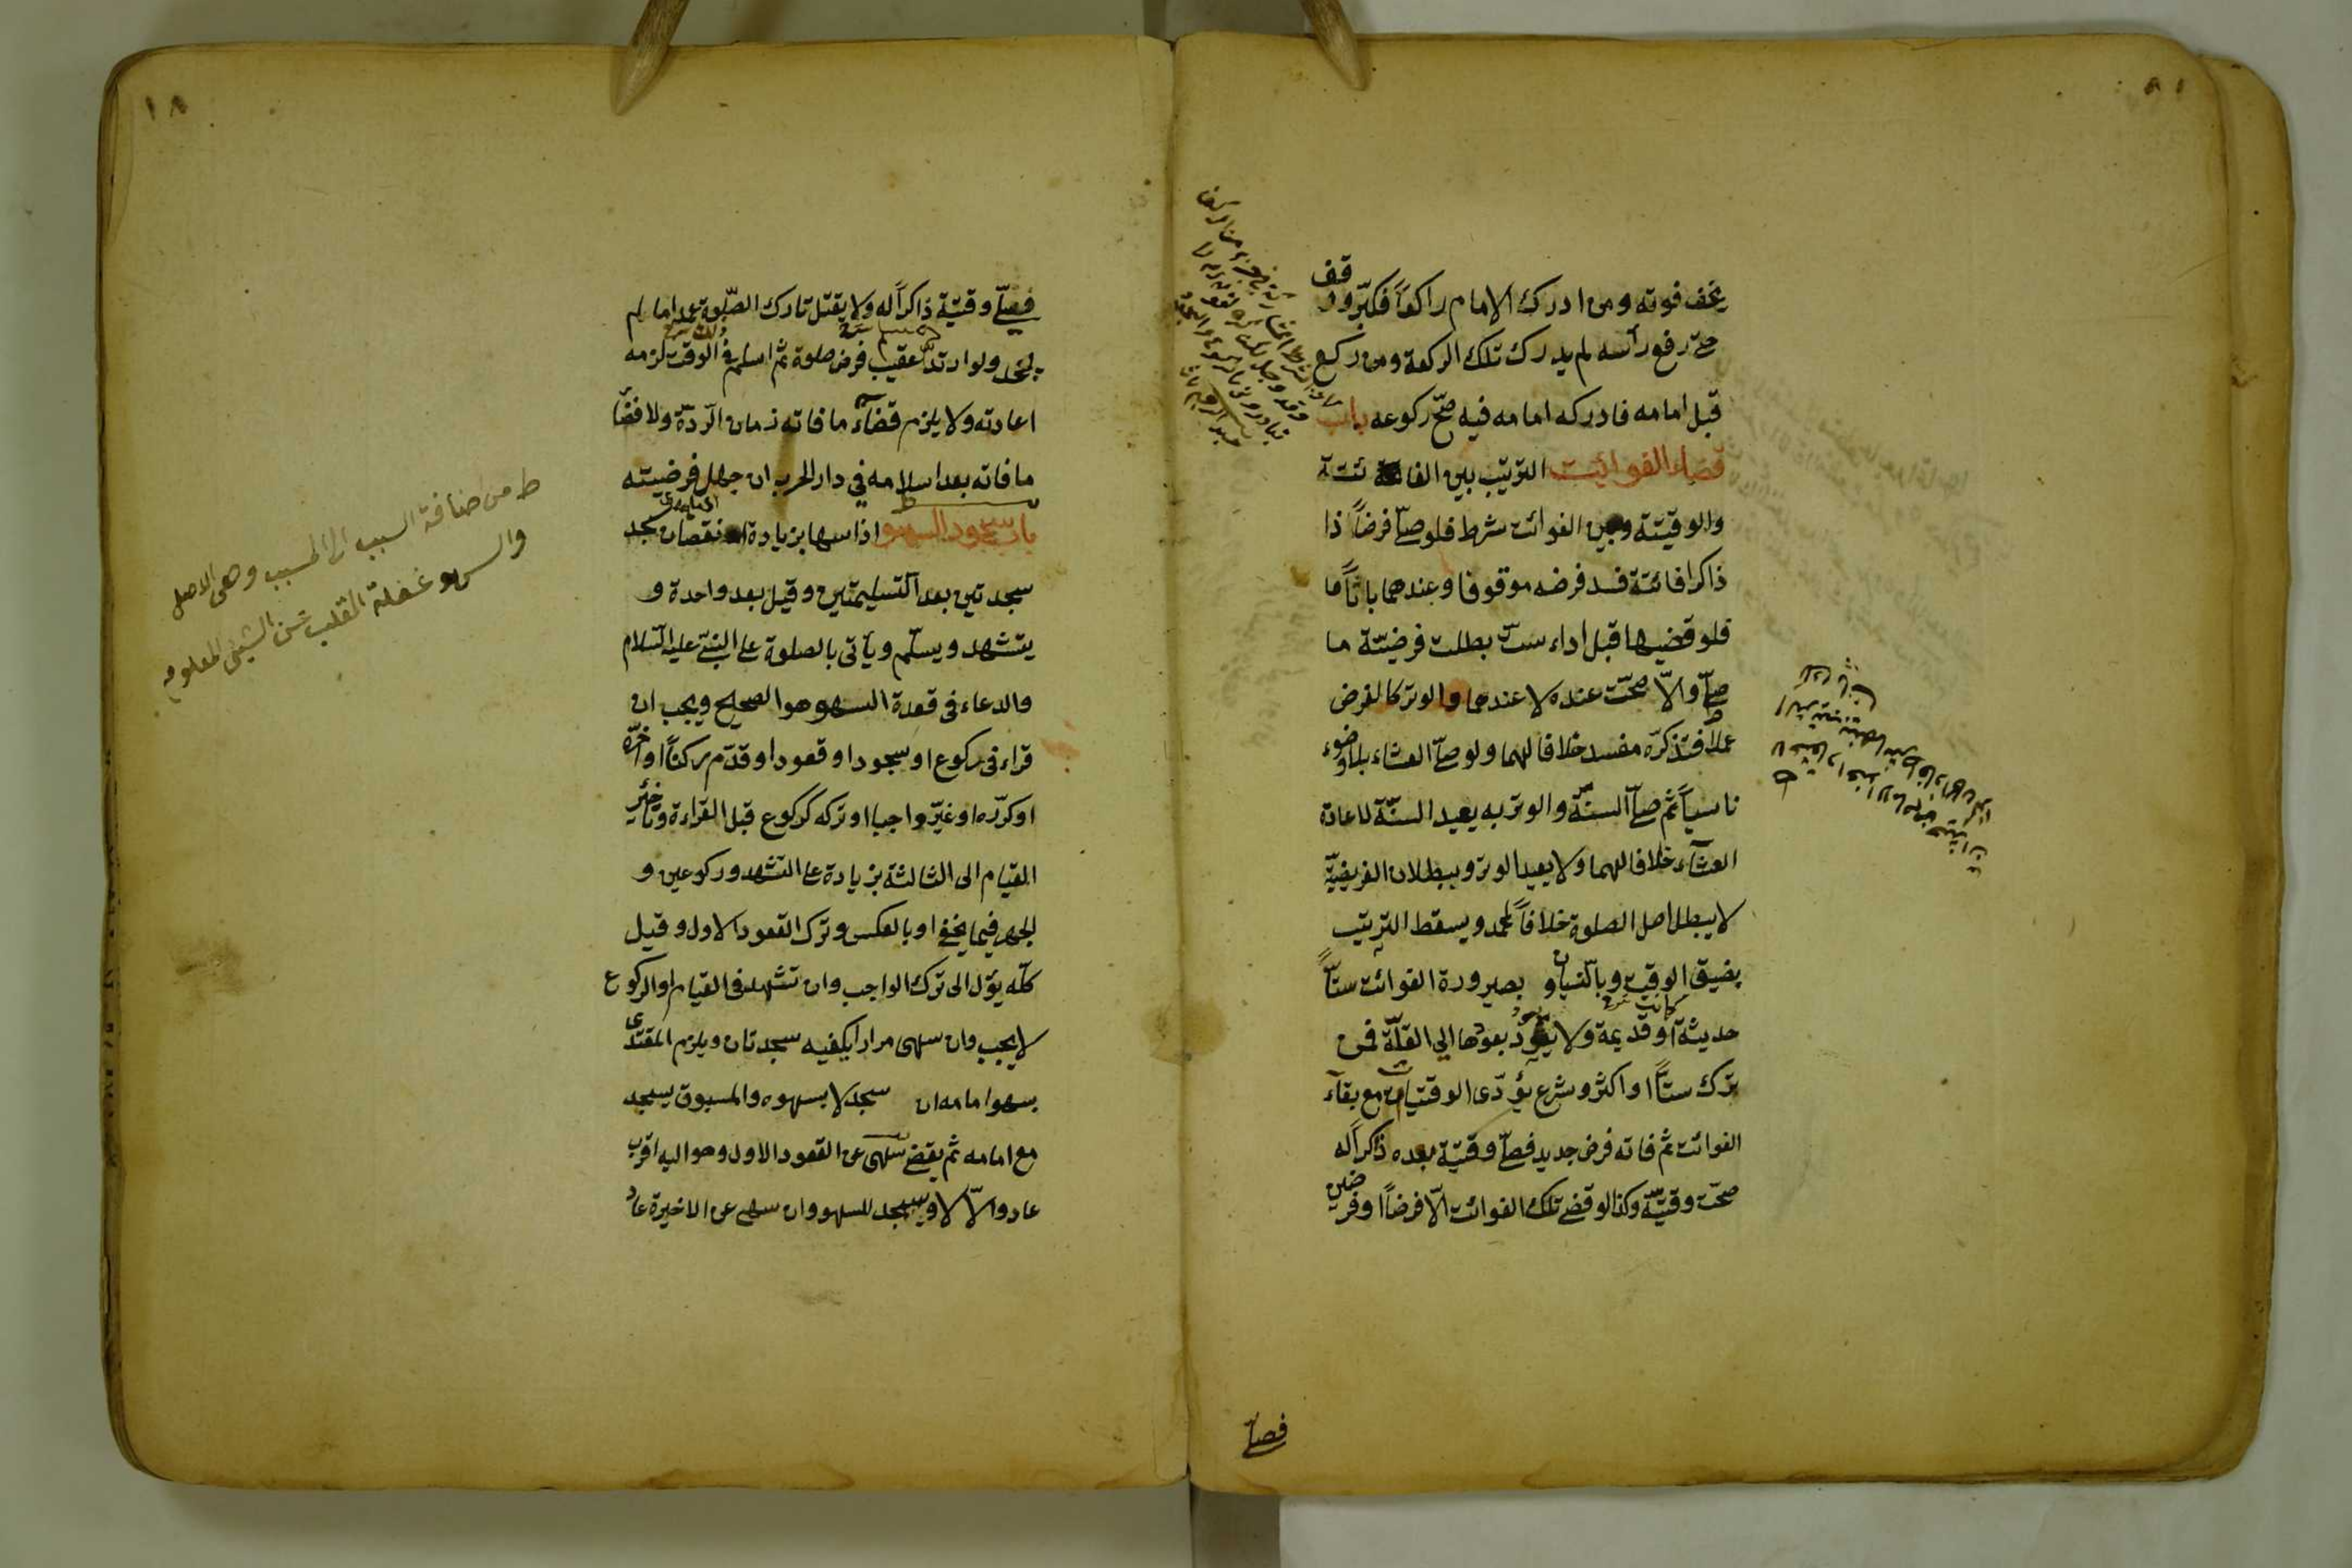 يخف فوته ومن ادرك الامام راكعاً فكبّر ووقف
حتّى رفع رأسه لم يدرك تلك الركعة ومن ركع
قبل امامه فادركه امامه فيه صحّ ركوعه باب
قضاء الفوائت الترتيب بين الفائتة
والوقيتة وبين الفوائت شرط فلو صلّى فرضاً ذا
ذاكرا فائتة فسد فرضه موقوفا وعندهما باتّاً فا
فلو قضيها قبل اداء ستّ بطلت فرضيّة ما
صلّى والاّ صحّت عنده لا عندهما والوتر كالفرض
عملا فتذكرّه مفسد خلافا لهما ولو صلّى العشاء بلا وضوء
ناسياً ثم صلّى السنّة والوتر به يعيد السنّة لاعادة
العشآء خلافا لهما ولا يعيد الوتر وببطلان الفريضيّة
لا يبطل اصل الصلوة خلافاً لمحمد ويسقط الترتيب
بضيق الوقت وبالنسيان و بصيرورة الفوائت ستاًّ
كانت
حديثة او قديمة ولا يعود بعودها الي القلّة فمن
ترك ستاًّ او اكثر وشرع يؤدّى الوقتيات مع بقآء
الفوائت ثم فاته فرض جديد فصلّى وقتيّة بعده ذاكراً له
صحّت وقتيّة وكذا لو قضى تلك الفوائت الاّ فرضاً او فرضين
فصلى
١٨
فصلّى وقتيّة ذاكراً له ولا يقتل تارك الصّلوة عمدا ما لم
يجحد ولو ارتدّ عقيب فرض صلوة ثم اسلم في الوقت لزمه
اعادته ولا يلزم قضآء ما فاته زمان الردّة ولا قضا
ما فاته بعد اسلامه في دار الحرب ان جهل فرضيته
باب سجود السهو اذا سها بزيادة او نقصان سجد
سجدتين بعد التسليمتين وقيل بعد واحدة و
يتشهد ويسلّم ويأتى بالصلوة على النبىّ عليه السّلام
والدعاء فى قعدة السهو هو الصحيح ويجب ان
قراء فى ركوع او سجود او قعود او قدّم ركنًا او اخّره
او كرّره او غيّر واجبا او تركه كركوع قبل القراءة وتاخير
القيام الى الثالثة بزيادة على التشهد وركوعين و
الجهر فيما يخفى او بالعكس وترك القعود الاول وقيل
كلّه يؤل الى ترك الواجب وان تشهد فى القيام او الركوع
لا يجب وان سهى مرارا يكفيه سجدتان ويلزم المقتدى
بسهو امامه ان سجد لا بسهوه والمسبوق يسجد
مع امامه ثم يقضى سهى عن القعود الاول وهو اليه اقرب
عاد والاّ لا ويسجد للسهو وان سهى عن الاخيرة عاد
ط من اضافة السبب الى المسبب وهى الاصل
والسهو غفلة القلب عن الشيئ المعلوم